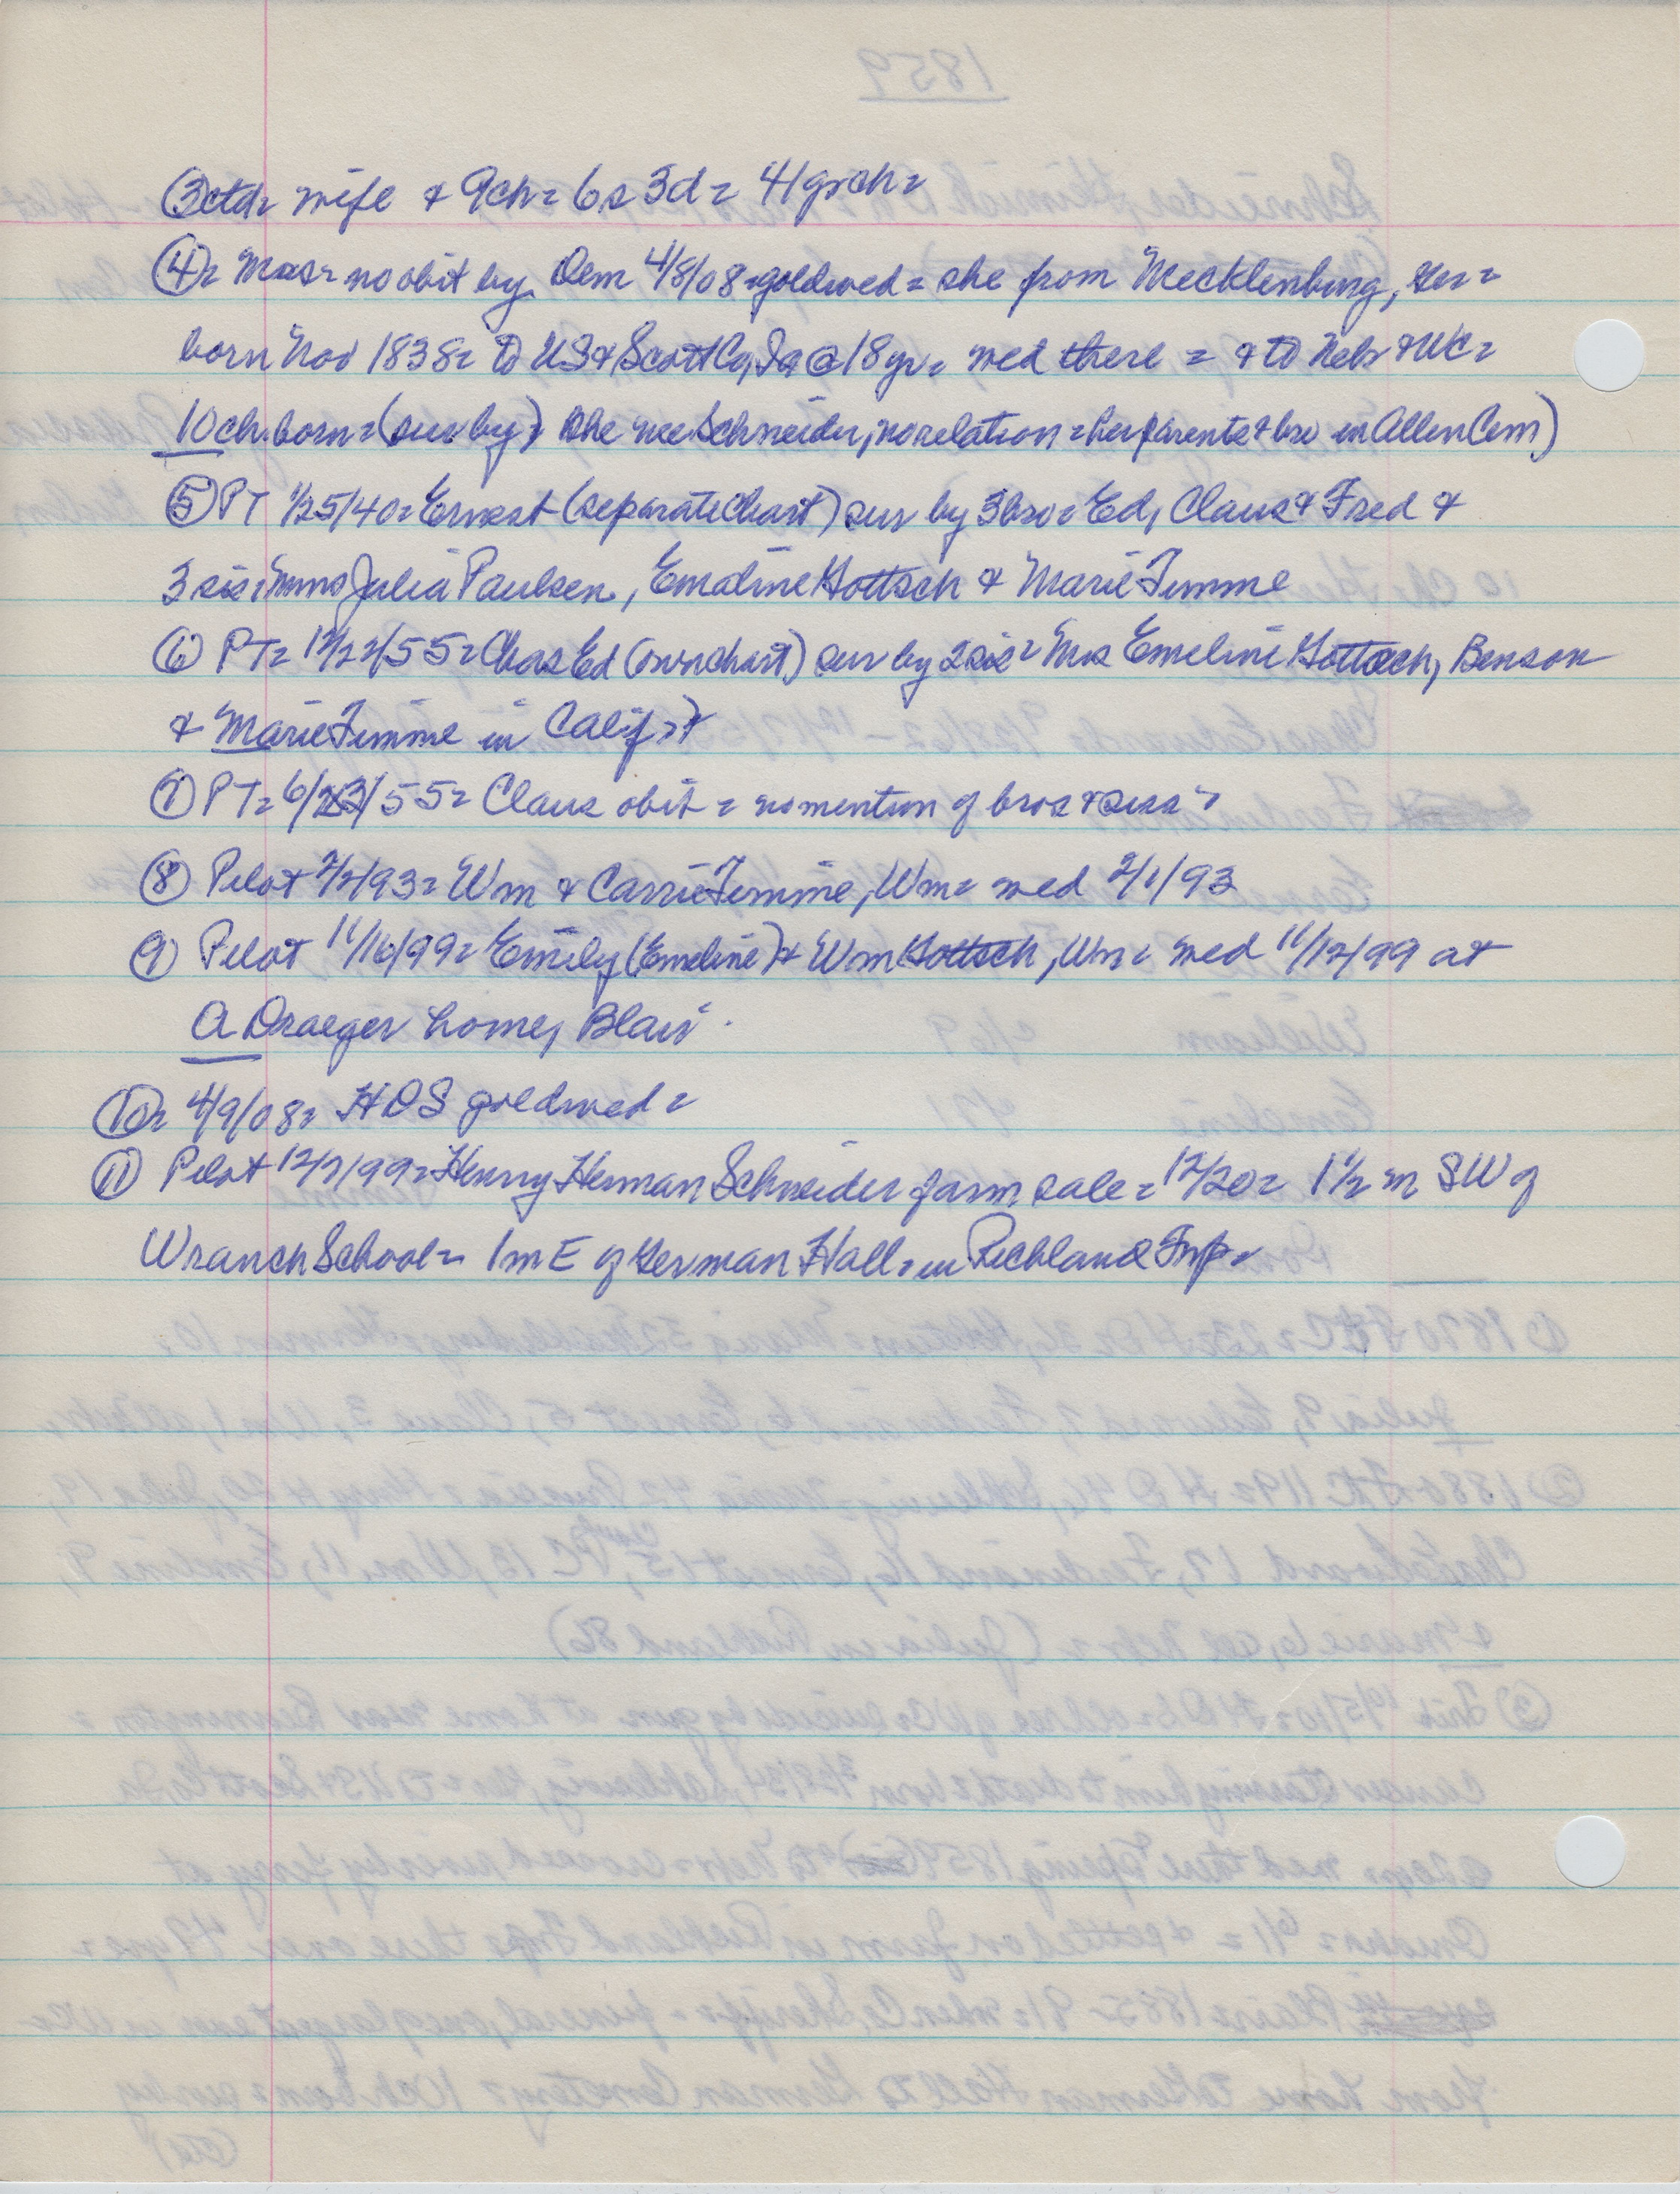 ③ctd= wife & 9ch= 6s 3d= 41 grch=
④= Mrs= no obit by Dem 4/8/08=goldwed= she from Mecklenburg, Ger=
born Nov 1838= to US & Scott Co, Ia @ 18yr= wed there = & to Nebr & WC=
10 ch born= (sur by) She nee Schneider, no relation=her parents & bro in Allen Cem)
⑤ PT 1/25/40= Ernest (separate chart) sur by 3bro= Ed, Claus & Fred &
3 sis= Mmes Julia Paulsen, Emaline Gottsch & Marie Timme
⑥ PT= 12/22/55= Chas Ed (own chart) sur by 2 sis= Mrs Emeline Gottsch, Benson
& Marie Timme in Calif
⑦ PT= 6/23/55= Claus obit = no mention of bros & siss=
⑧ Pilot 2/2/93= Wm & Carrie Timme, Wm= wed 2/1/93
⑨ Pilot 11/16/99= Emily (Emeline) & Wm Gottsch, Wm= wed 11/12/99 at
A Draeger home, Blair.
⑩= 4/9/08= HDS goldwed=
⑪ Pilot 12/7/99= Henry Herman Schneider farm sale= 12/20= 1 1/2 m SW of
Wranch School= 1m E of German Hall= in Richland Twp=